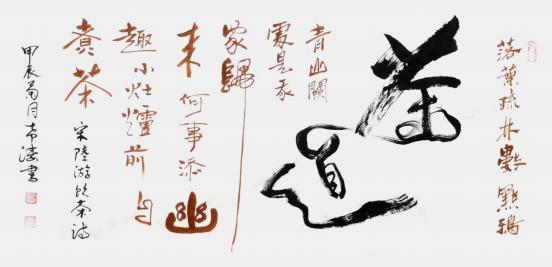 落葉疏林數點鴉
茶道
青山闕
處是吾
家歸
来何事添幽
趣小灶爐前自
煮茶
宋陸游飲茶詩
甲辰菊月書